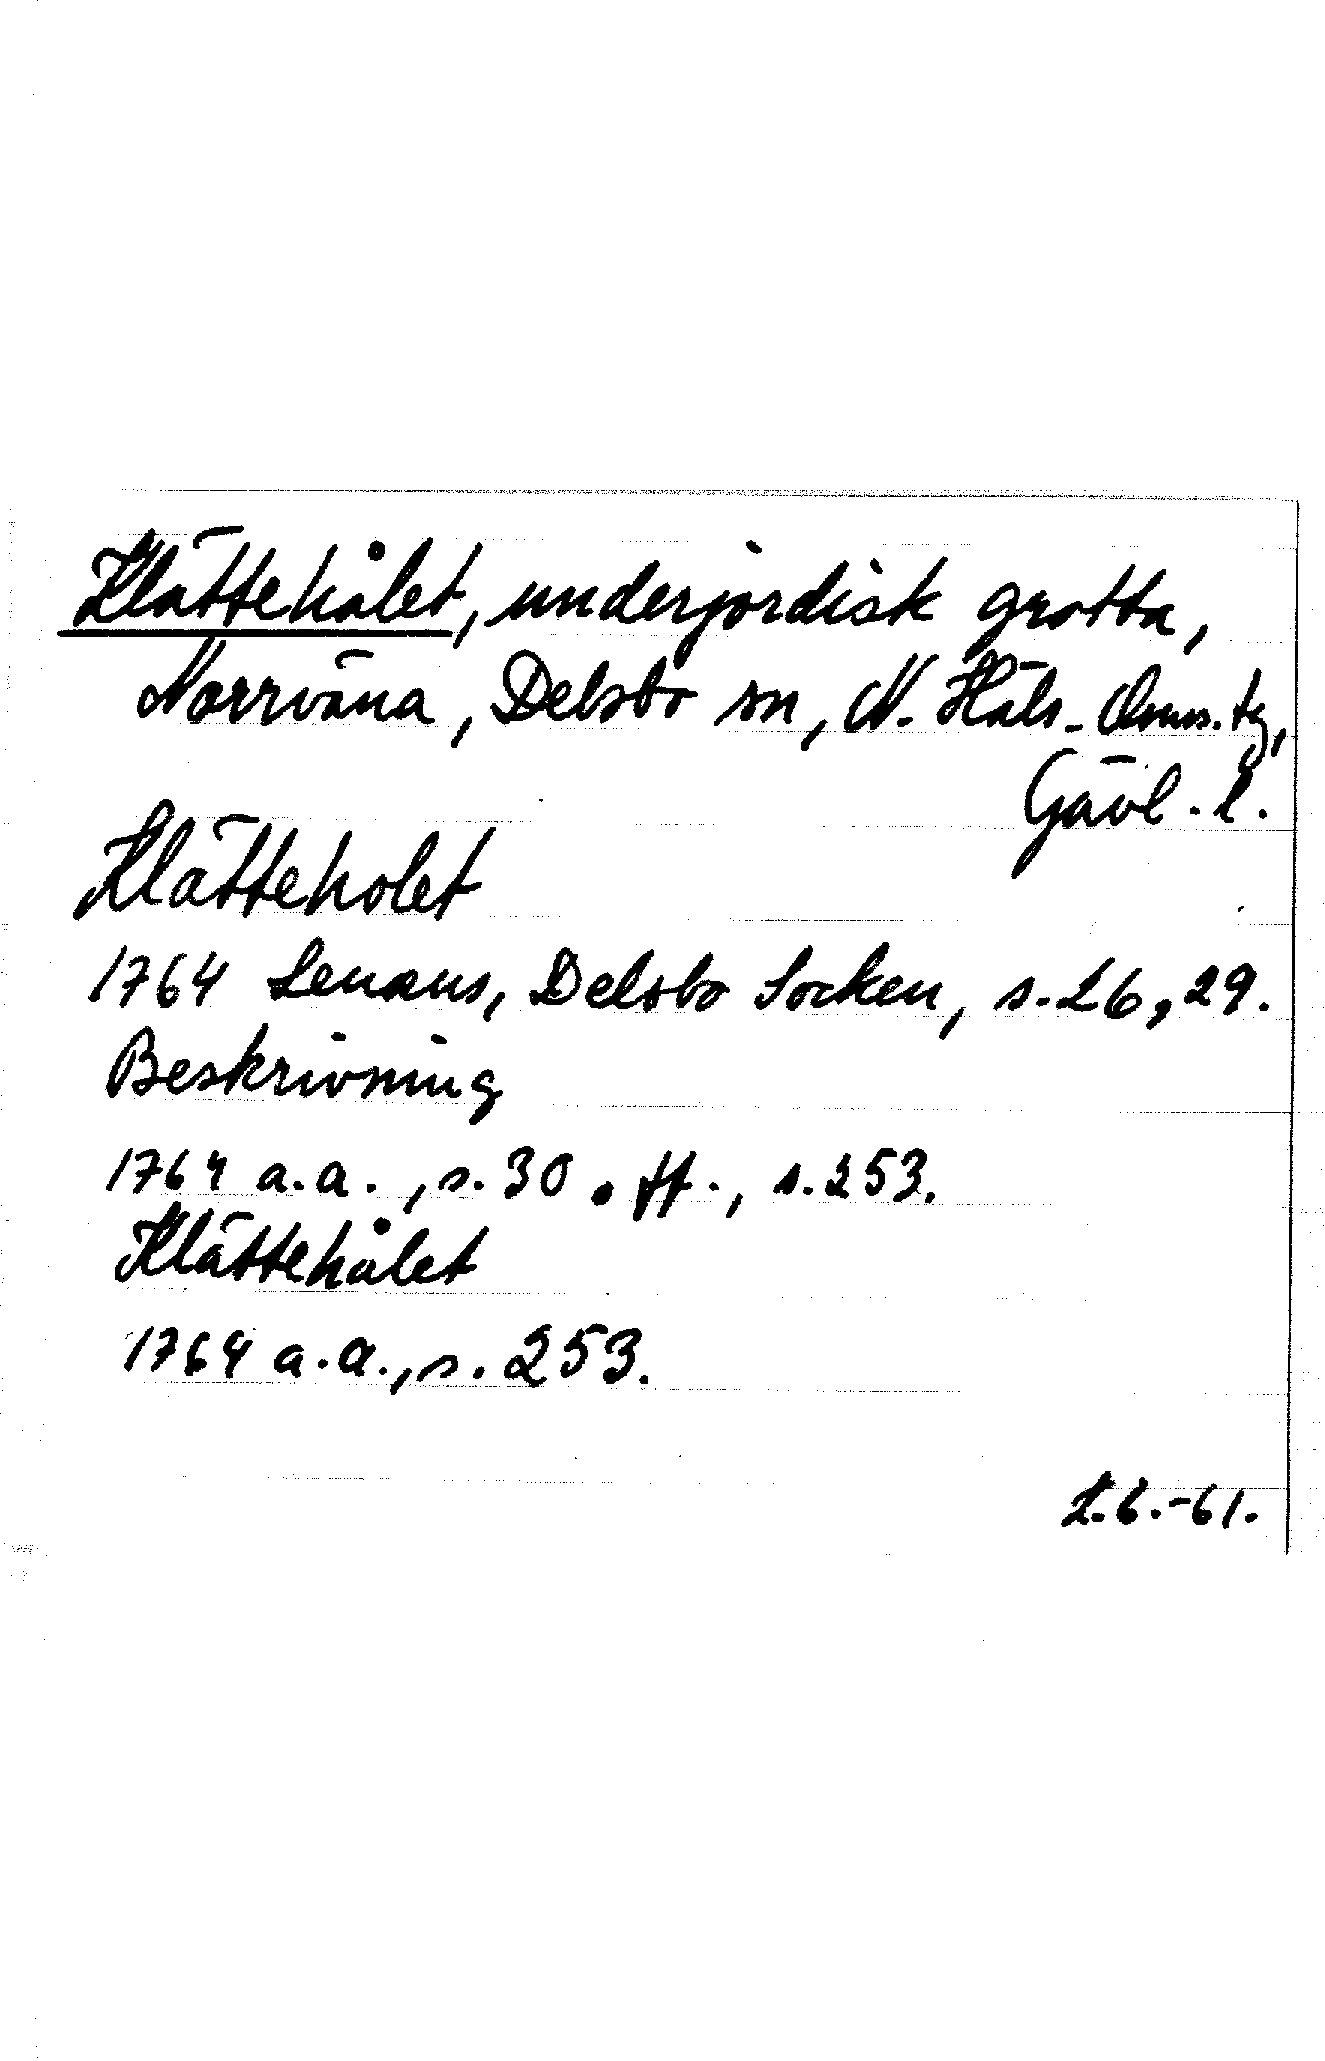 Klättehålet, underjordisk grotta,
Norrväna, Delsbo sn, N. Häls. tg,
Gävl. l.
Klätteholet
1764 Lenæus, Delsbo Socken, s. 26, 29.
Beskrivning
1764 a.a., s. 30. ff., s. 253.
Klättehålet
1764 a.a., s. 253.
2.6.-61.